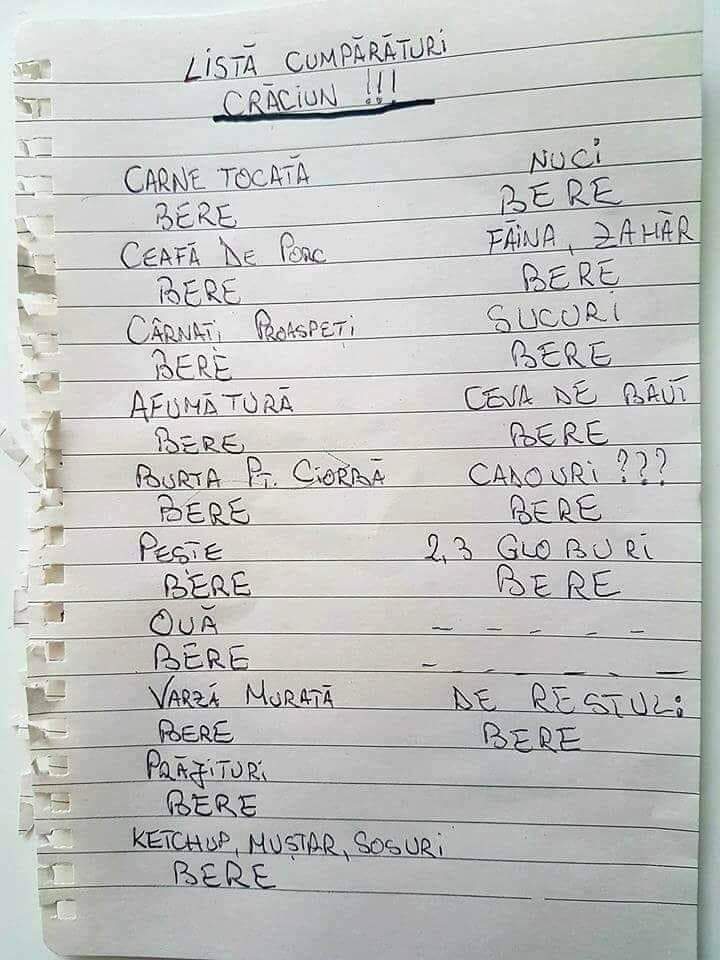 LISTĂ CUMPĂRĂTURI
CRĂCIUN !!!
CARNE TOCATĂ
BERE
CEAFĂ DE PORC
BERE
CÂRNAȚI PROASPEȚI
BERE
AFUMĂTURĂ
BERE
BURTA PT. CIORBĂ
BERE
PEȘTE
BERE
OUĂ
BERE
VARZĂ MURATĂ
BERE
PRĂJITURI
BERE
KETCHUP, MUȘTAR, SOSURI
BERE
NUCI
BERE
FĂINA, ZAHĂR
BERE
SUCURI
BERE
CEVA DE BĂUT
BERE
CADOURI ???
BERE
2,3 GLOBURI
BERE
– – – – –
– – – – – –
DE RESTUL:
BERE